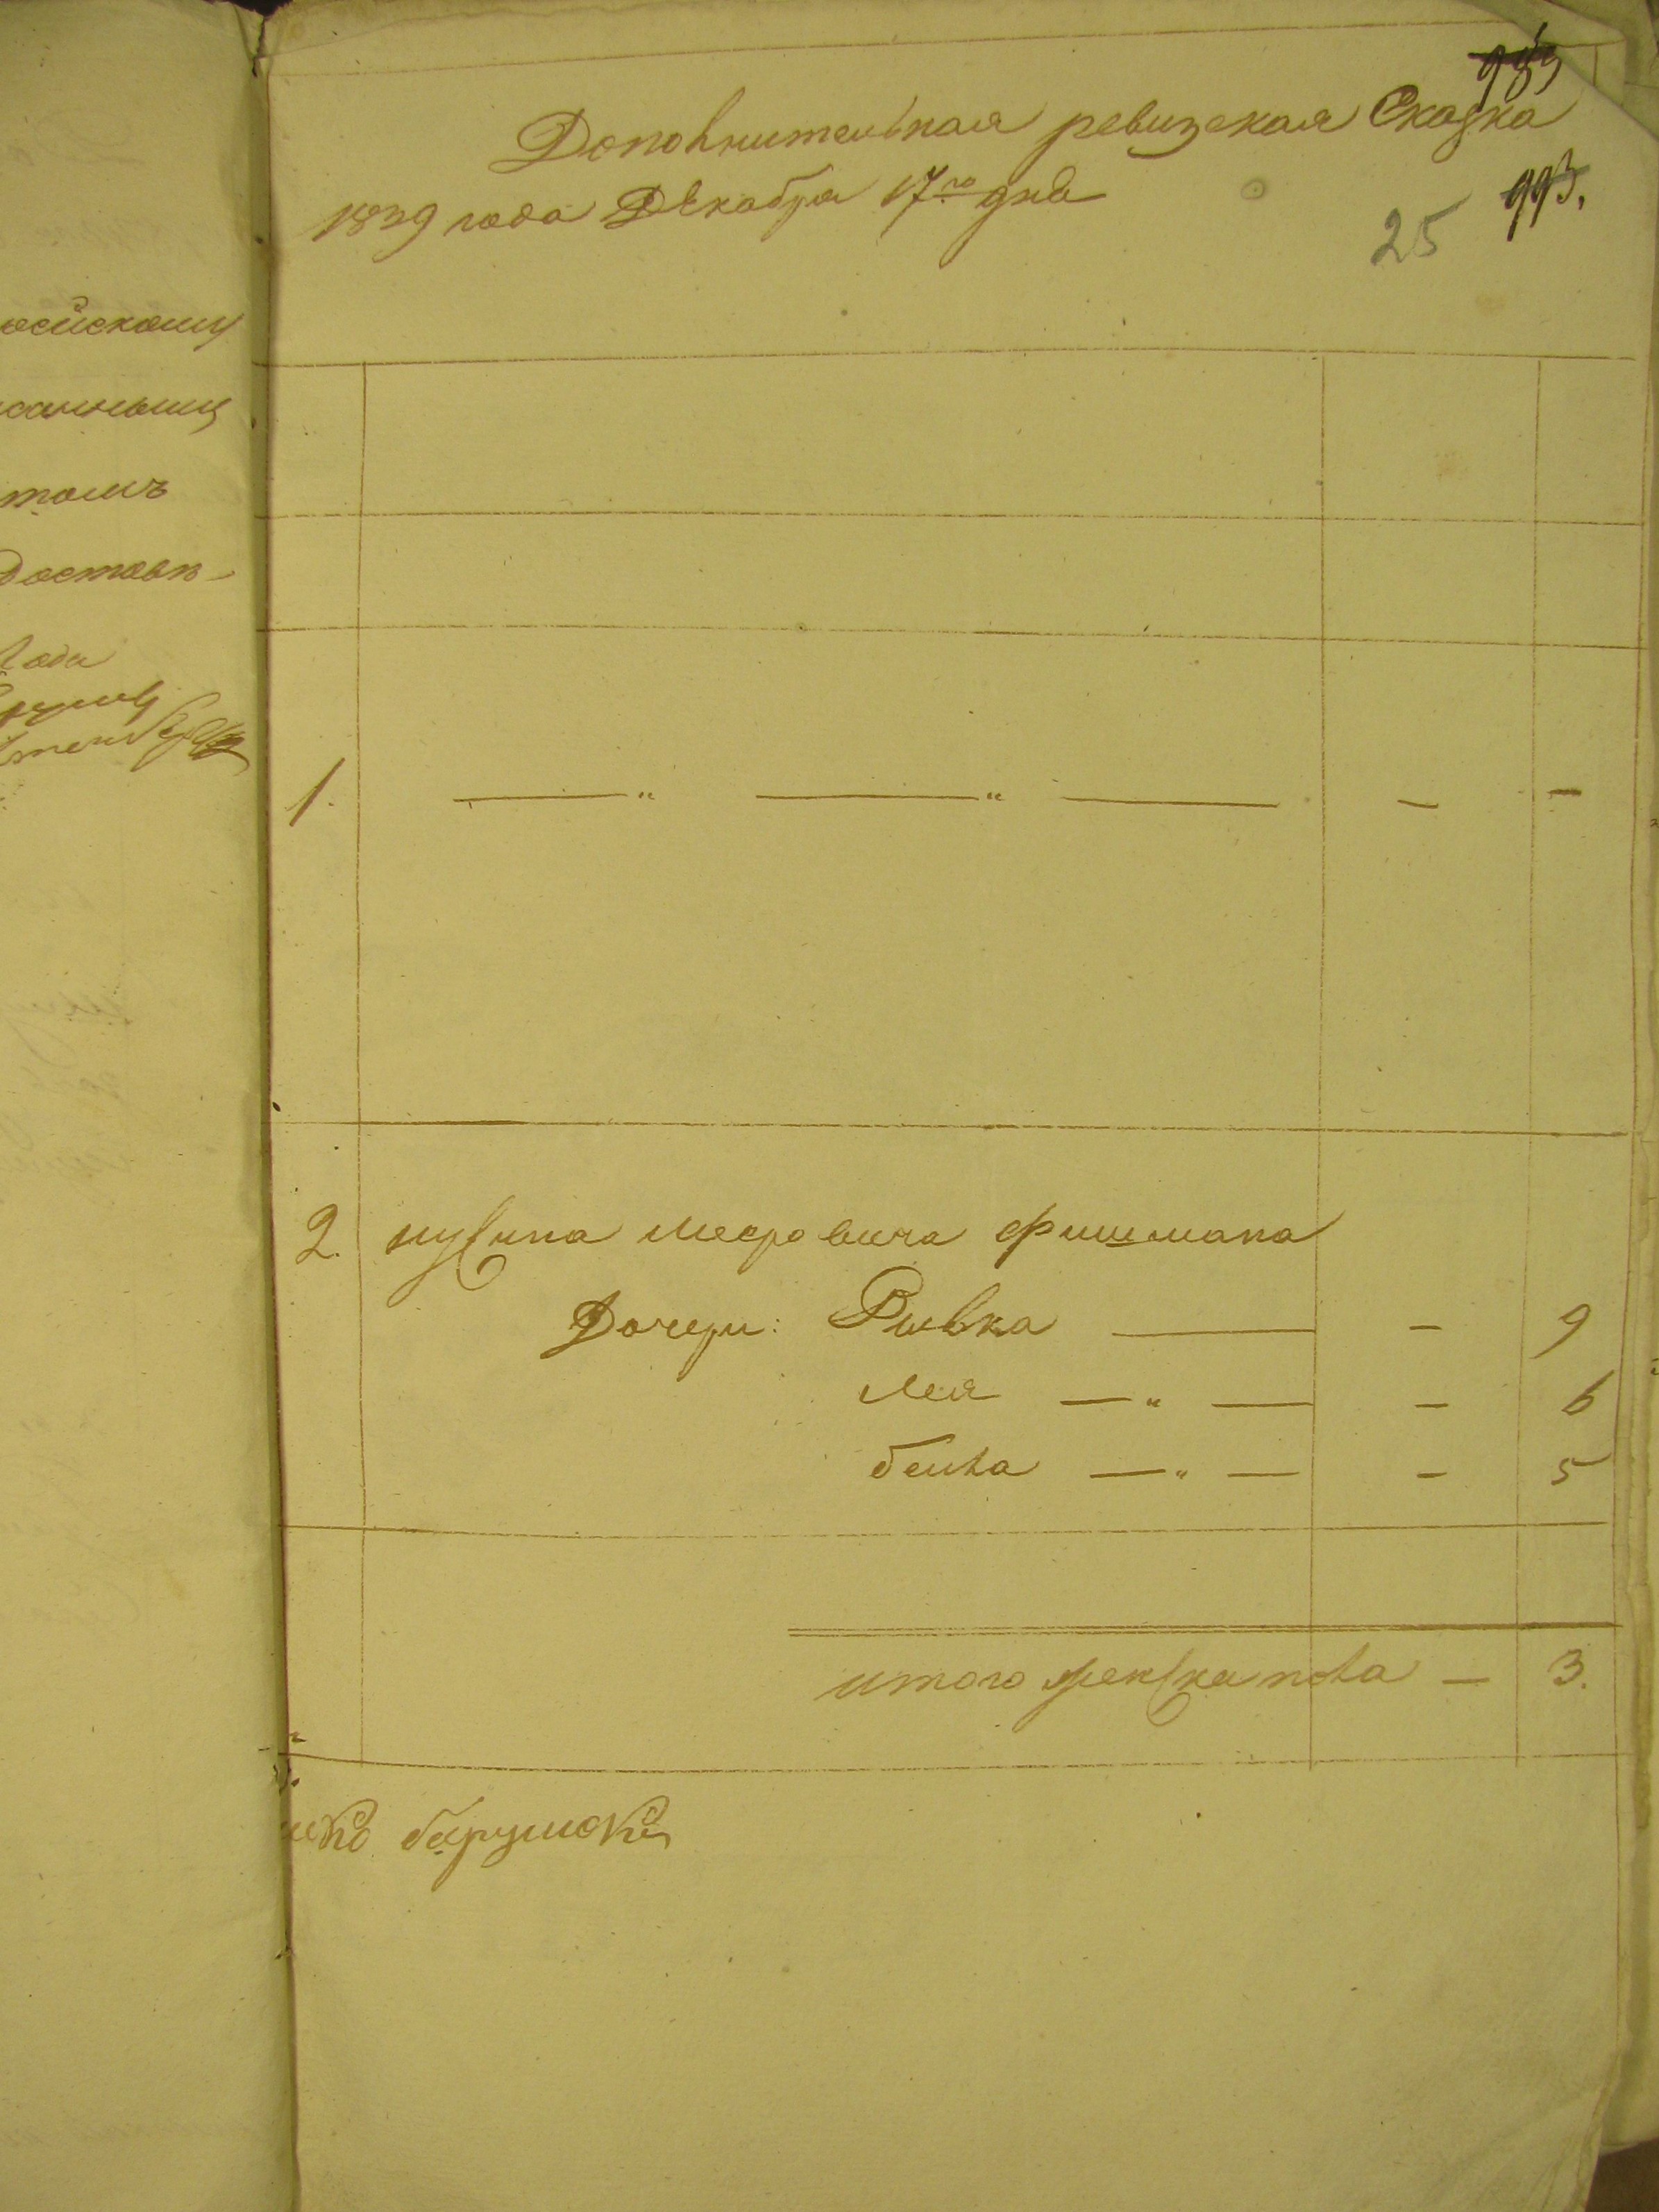 989
Дополнительная ревизская Сказка
1839 года Декабря 17го дня
25 993.
осійскому
санному
томъ
доставл
года
1. — " — " — — —
2. нусина мееровича фишмана
Дочери: Ривка — — 9
Лея — " — — 6
бейла — " — — 5
итого женска пола — 3.